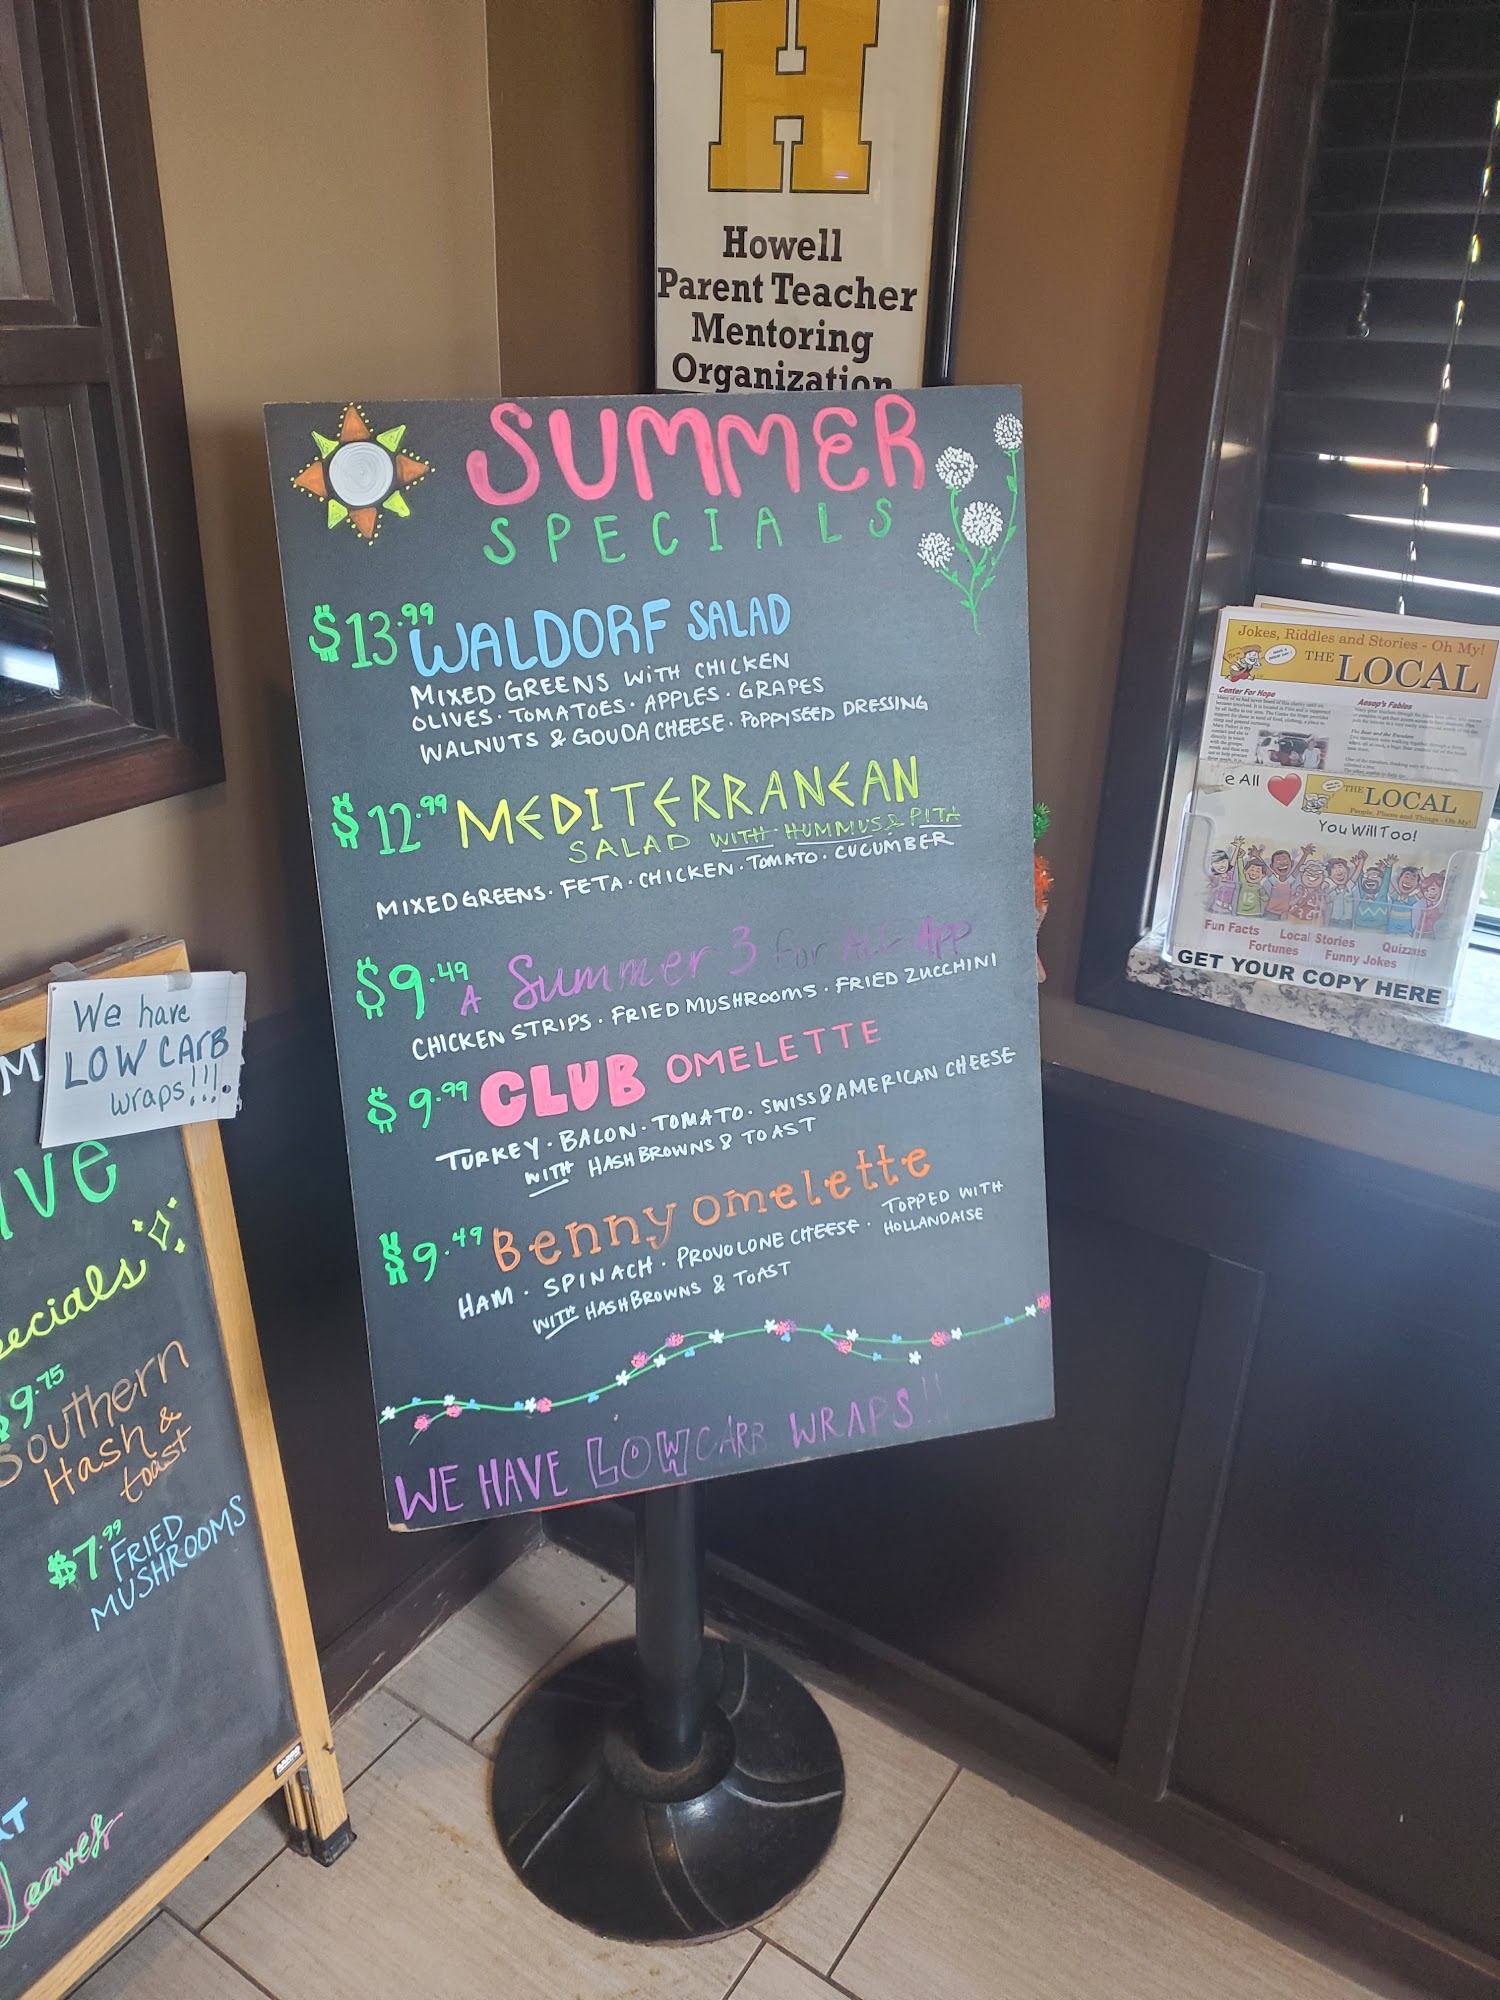 H
Howell
Parent Teacher
Mentoring
Organization
SUMMER
SPECIALS
$13.99 WALDORF SALAD
MIXED GREENS WITH CHICKEN
OLIVES · TOMATOES · APPLES · GRAPES
WALNUTS & GOUDA CHEESE · POPPYSEED DRESSING
$12.99 MEDITERRANEAN
SALAD WITH HUMMUS & PITA
MIXED GREENS · FETA · CHICKEN · TOMATO · CUCUMBER
$9.49 A Summer 3 for All App
CHICKEN STRIPS · FRIED MUSHROOMS · FRIED ZUCCHINI
$9.99 CLUB OMELETTE
TURKEY · BACON · TOMATO · SWISS & AMERICAN CHEESE
WITH HASHBROWNS & TOAST
$9.49 Benny omelette
HAM · SPINACH · PROVOLONE CHEESE · TOPPED WITH
HOLLANDAISE
WITH HASHBROWNS & TOAST
WE HAVE LOW CARB WRAPS!!
We have
LOW CARB
wraps!!!
$9.75
Southern
Hash &
toast
$7.99 FRIED
MUSHROOMS
Jokes, Riddles and Stories - Oh My!
THE LOCAL
Center For Hope
Aesop's Fables
THE LOCAL
People, Places and Things - Oh My!
You Will Too!
Fun Facts Local Stories Quizzes
Fortunes Funny Jokes
GET YOUR COPY HERE